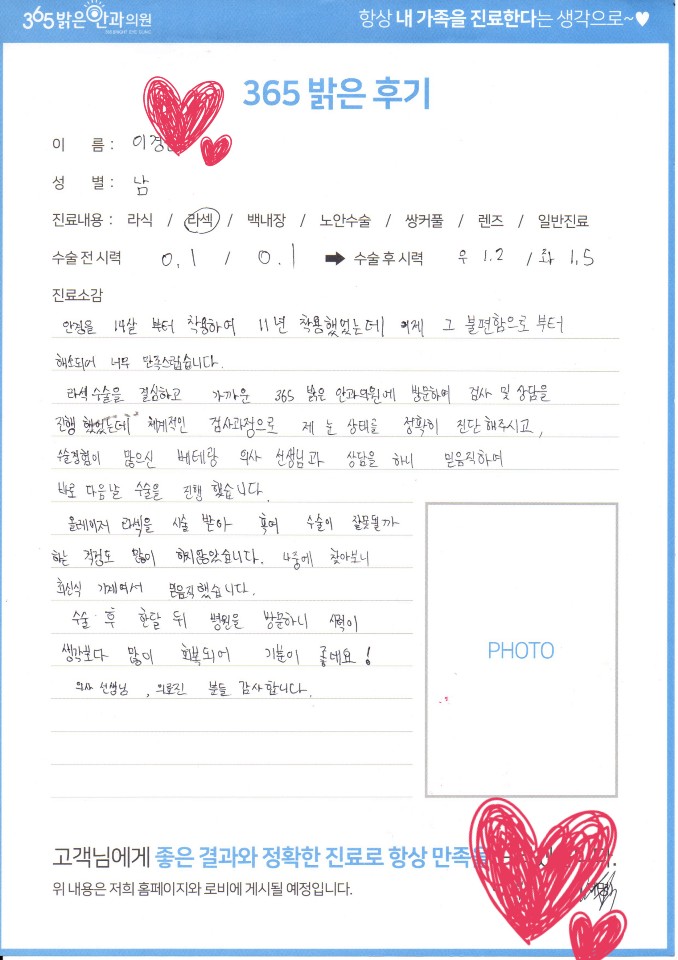 365 밝은안과의원
항상 내 가족을 진료한다는 생각으로~♥
365 밝은 후기
이 름 : 이경
성 별 : 남
진료내용 : 라식 / 라섹 / 백내장 / 노안수술 / 쌍커풀 / 렌즈 / 일반진료
수술 전 시력 0.1 / 0.1 ➡ 수술 후 시력 우 1.2 / 좌 1.5
진료소감
안경을 14살 부터 착용하여 11년 착용했었는데 이제 그 불편함으로 부터
해소되어 너무 만족스럽습니다.
라섹수술을 결심하고 가까운 365 밝은 안과의원에 방문하여 검사 및 상담을
진행 했었는데 체계적인 검사과정으로 제 눈 상태를 정확히 진단 해주시고,
수술경험이 많으신 베테랑 의사 선생님과 상담을 하니 믿음직하여
바로 다음날 수술을 진행 했습니다.
올레이저 라섹을 시술 받아 혹여 수술이 잘못될까
하는 걱정도 많이 하지않았습니다. 나중에 찾아보니
최신식 기계여서 믿음직했습니다.
수술 후 한달 뒤 병원을 방문하니 시력이
생각보다 많이 회복되어 기분이 좋네요!
의사 선생님, 의료진 분들 감사합니다.
PHOTO
고객님에게 좋은 결과와 정확한 진료로 항상 만족을
위 내용은 저희 홈페이지와 로비에 게시될 예정입니다.